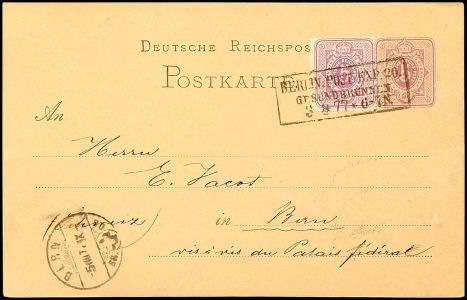 DEUTSCHE REICHSPOST
POSTKARTE
BERLIN, POST EXP. 20.
GESUNDBRUNNEN
3 8 77 * 6-7N.
An
Herrn
E. Vacot
in Bern
vis à vis du Palais fédéral
BERN